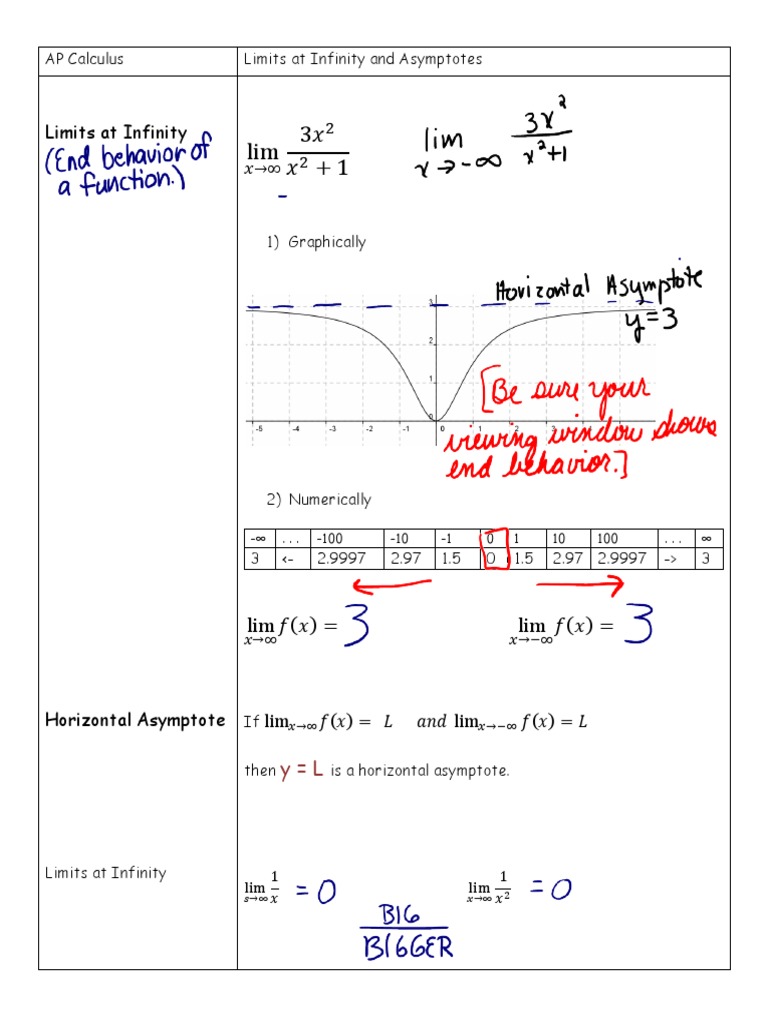 AP Calculus
Limits at Infinity and Asymptotes
Limits at Infinity
(End behavior of
a function.)
lim x→∞ 3x²/(x² + 1)
lim x→-∞ 3x²/(x²+1)
1) Graphically
Horizontal Asymptote
y=3
3
2
1
0
-5 -4 -3 -2 -1 0 1 2 3
[Be sure your
viewing window shows
end behavior.]
2) Numerically
-∞ ... -100 -10 -1 0 1 10 100 ... ∞
3 <- 2.9997 2.97 1.5 0 1.5 2.97 2.9997 -> 3
lim x→∞ f(x) = 3
lim x→−∞ f(x) = 3
Horizontal Asymptote
If lim x→∞ f(x) = L and lim x→−∞ f(x) = L
then y = L is a horizontal asymptote.
Limits at Infinity
lim s→∞ 1/x = 0
lim x→∞ 1/x² = 0
BIG
BIGGER